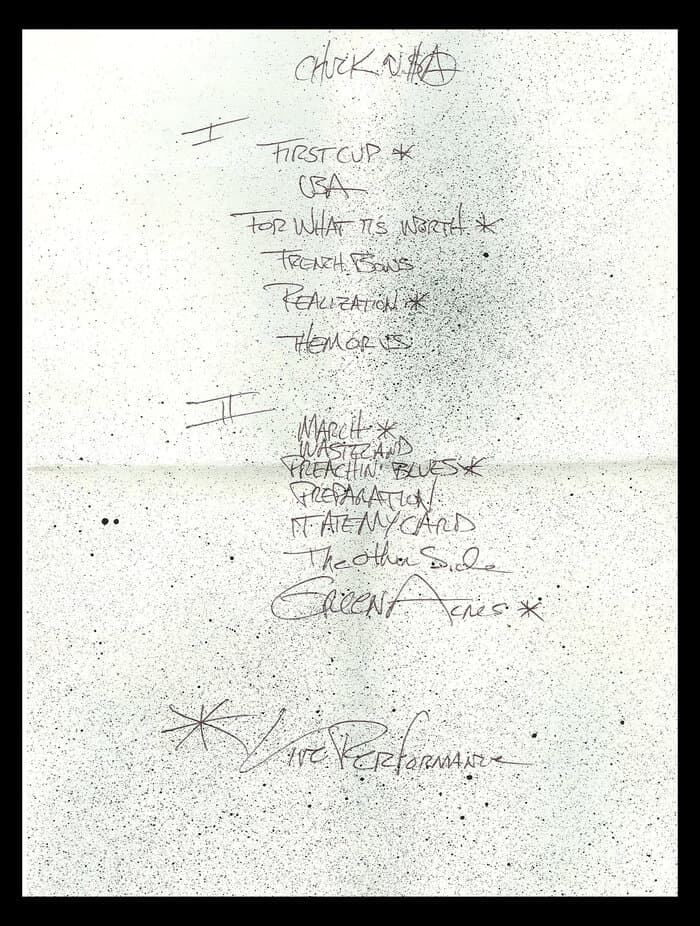 CHUCK
I
FIRST CUP *
FOR WHAT IT'S WORTH *
FRENCH
REALIZATION *
II
MARCH *
WASTELAND
PREACHIN' BLUES *
PREPARATION
IT ATE MY CARD
The Other Side
GREEN Acres *
* LIVE PERFORMANCE